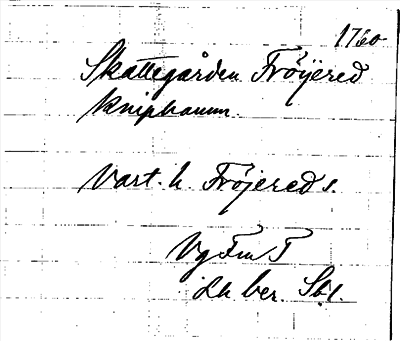 1760
Skattegården Fröjered
Kniphamn.
Vart. h. Fröjereds s.
Vg Fm T
Lh ber. Sbl.